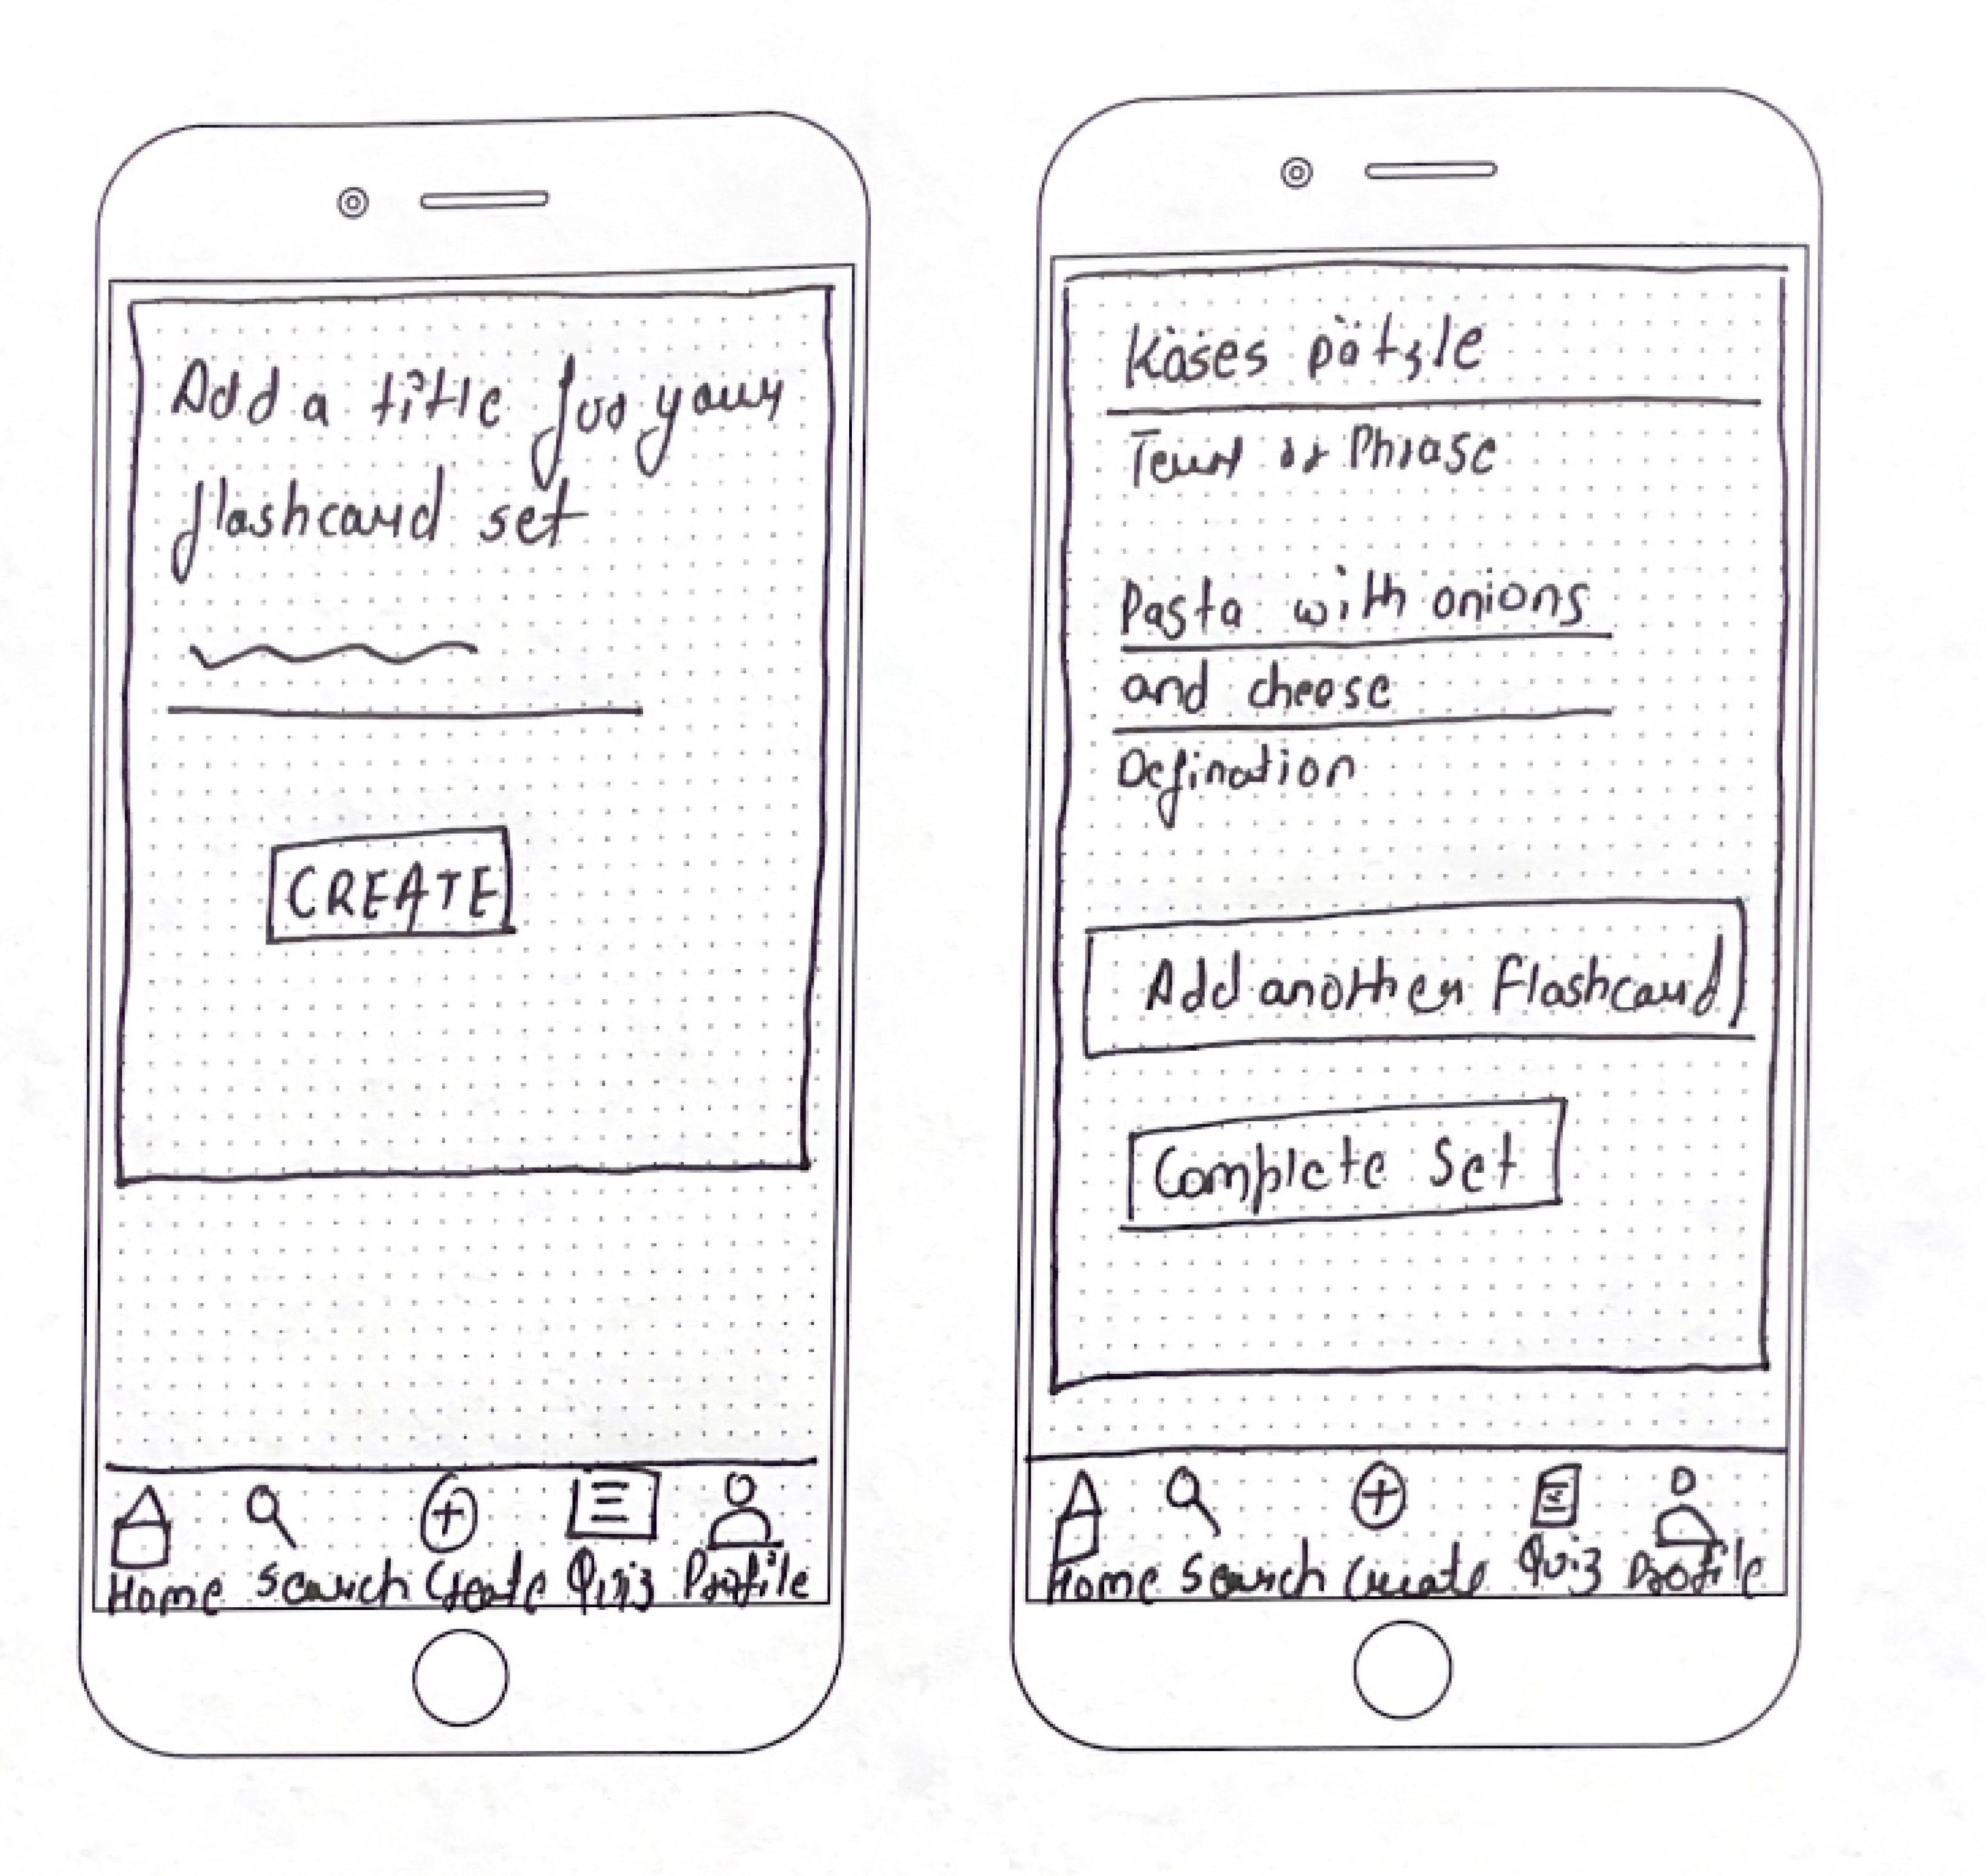 Add a title for your
flashcard set
CREATE
Home Search Create Quiz Profile
Käses pätzle
Term or Phrase
Pasta with onions
and cheese
Defination
Add another Flashcard
Complete Set
Home Search Create Quiz Profile